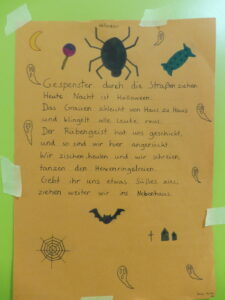 Halloween
Gespenster durch die Straßen ziehen
Heute Nacht ist Halloween.
Das Grauen schleicht von Haus zu Haus
und klingelt alle Leute raus.
Der Rübengeist hat uns geschickt,
und so sind wir hier angerückt.
Wir zischen, heulen und wir schreien,
tanzen den Hexenringelreien.
Gebt ihr uns etwas Süßes ein,
ziehen weiter wir ins Nebenhaus.